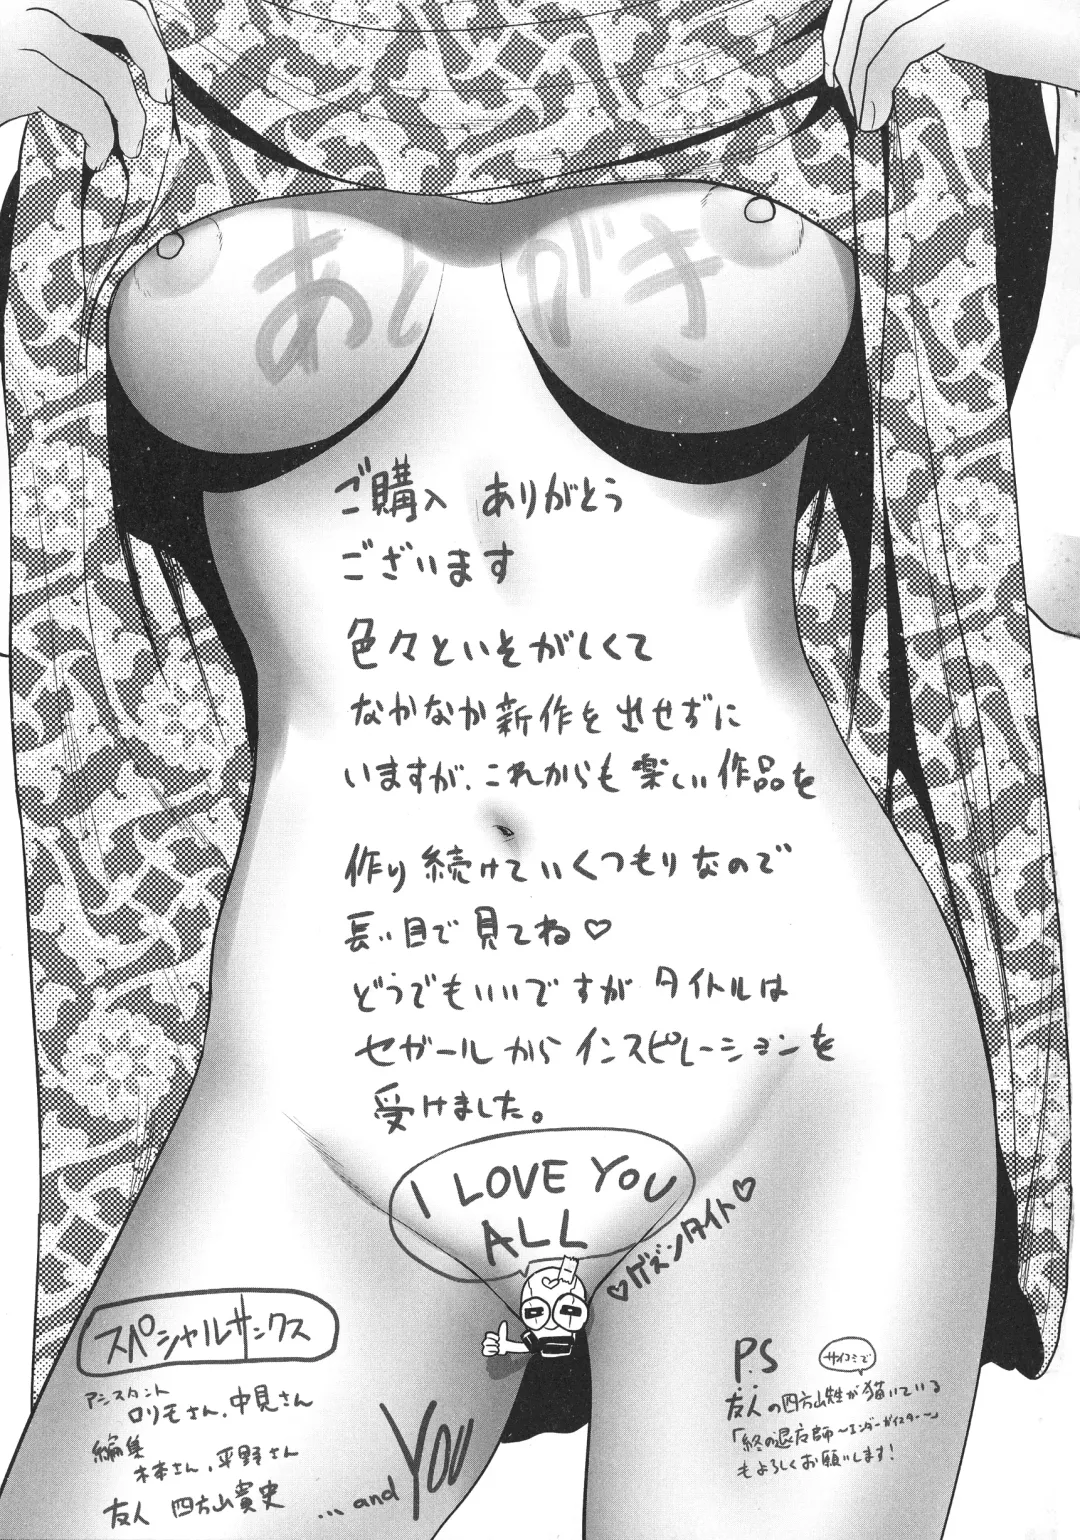 あとがき
ご購入 ありがとう
ございます
色々といそがしくて
なかなか新作を出せずに
いますが、これからも楽しい作品を
作り続けていくつもりなので
長い目で見てね♡
どうでもいいですが タイトルは
セガールからインスピレーションを
受けました。
I LOVE YOU
ALL
♡ゲズンタイト♡
スペシャルサンクス
アシスタント
ロリモさん、中見さん
編集
木本さん、平野さん
友人 四方山貴史
...and YOU
P.S
サイコミで
友人の四方山が描いている
「終の退魔師～エンダーガイスター～」
もよろしくお願いします!